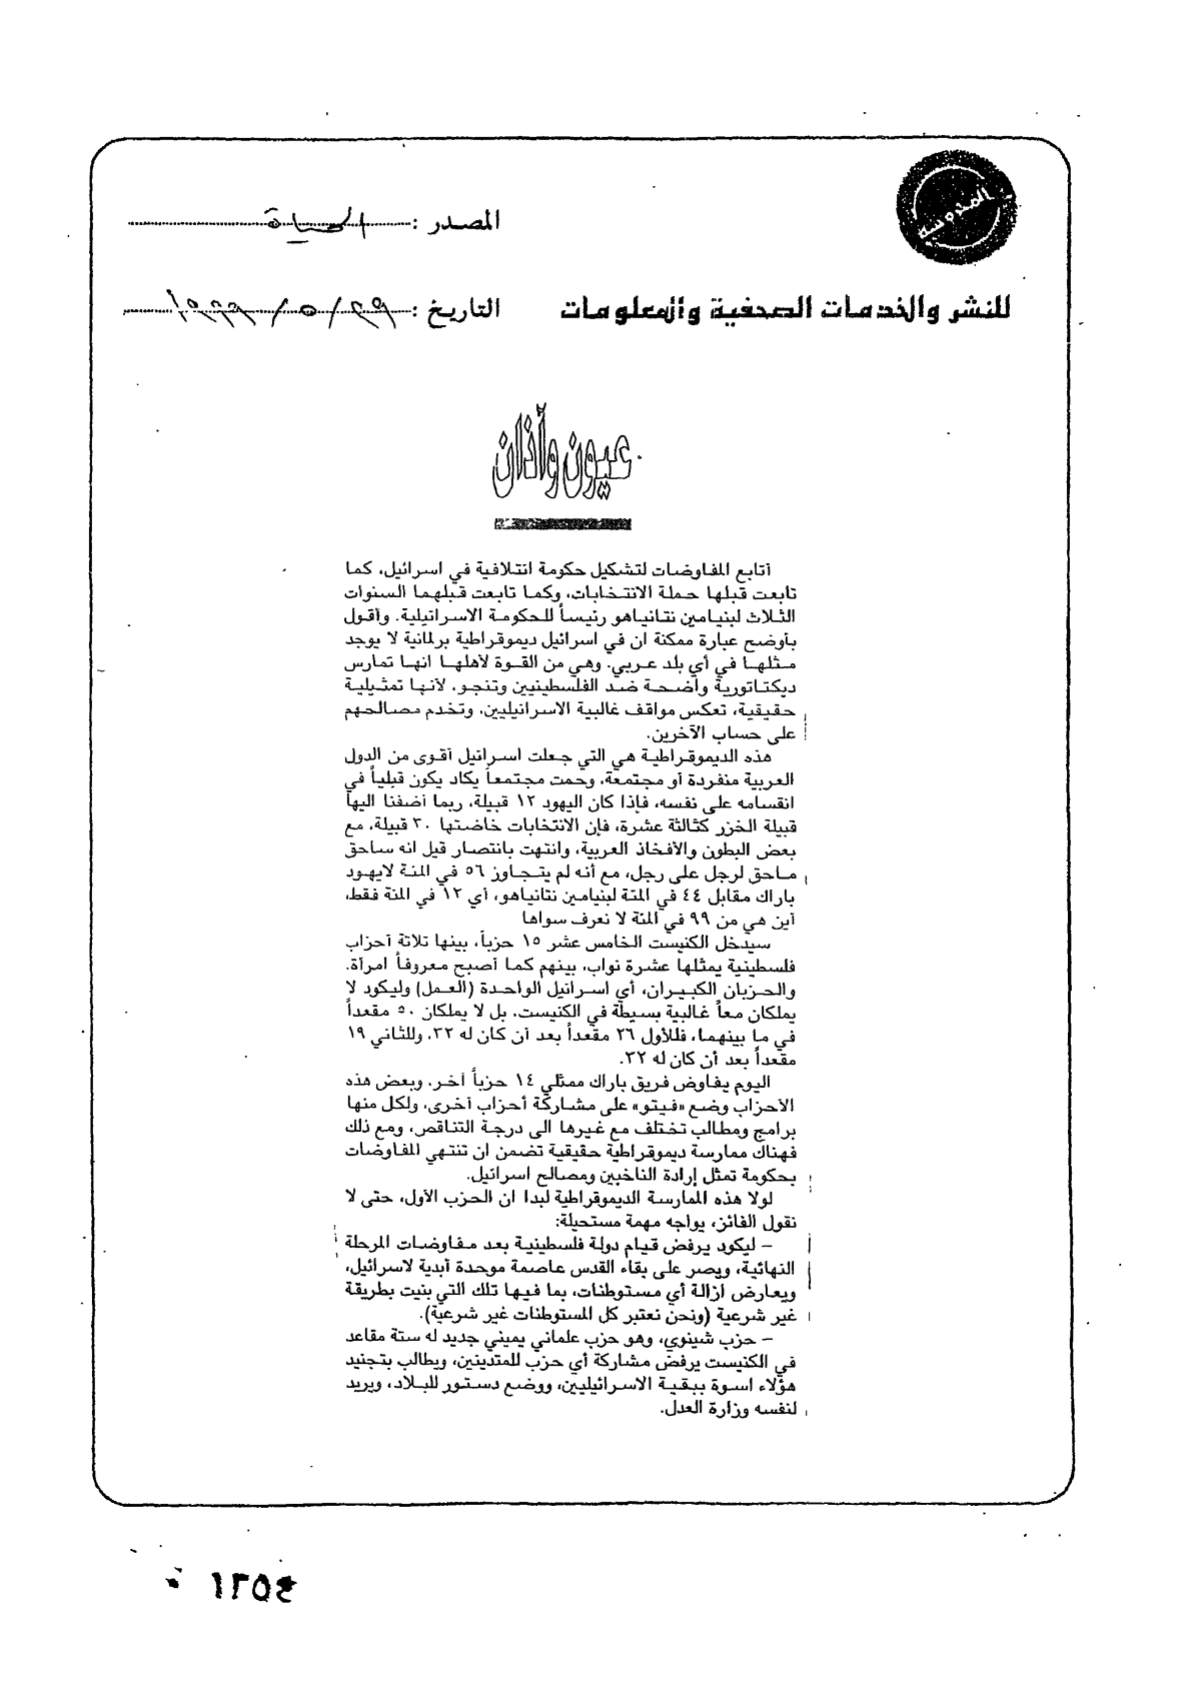 المدوسة
المصدر : الحياة
للنشر والخدمات الصحفية والمعلومات
التاريخ : ٢٩ / ٥ / ١٩٩٩
عيون وآذان
أتابع المفاوضات لتشكيل حكومة ائتلافية في اسرائيل، كما
تابعت قبلها حملة الانتخابات، وكما تابعت قبلهما السنوات
الثلاث لبنيامين نتانياهو رئيساً للحكومة الاسرائيلية. وأقول
بأوضح عبارة ممكنة ان في اسرائيل ديموقراطية برلمانية لا يوجد
مثلها في أي بلد عربي. وهي من القوة لأهلها انها تمارس
ديكتاتورية واضحة ضد الفلسطينيين وتنجو، لأنها تمثيلية
حقيقية، تعكس مواقف غالبية الاسرائيليين، وتخدم مصالحهم
على حساب الآخرين.
هذه الديموقراطية هي التي جعلت اسرائيل أقوى من الدول
العربية منفردة أو مجتمعة، وحمت مجتمعاً يكاد يكون قبلياً في
انقسامه على نفسه، فإذا كان اليهود ١٢ قبيلة، ربما أضفنا اليها
قبيلة الخزر كثالثة عشرة، فإن الانتخابات خاضتها ٣٠ قبيلة، مع
بعض البطون والأفخاذ العربية، وانتهت بانتصار قيل انه ساحق
ماحق لرجل على رجل، مع أنه لم يتجاوز ٥٦ في المئة لايهود
باراك مقابل ٤٤ في المئة لبنيامين نتانياهو، أي ١٢ في المئة فقط،
أين هي من ٩٩ في المئة لا نعرف سواها
سيدخل الكنيست الخامس عشر ١٥ حزباً، بينها ثلاثة أحزاب
فلسطينية يمثلها عشرة نواب، بينهم كما أصبح معروفاً امرأة.
والحزبان الكبيران، أي اسرائيل الواحدة (العمل) وليكود لا
يملكان معاً غالبية بسيطة في الكنيست، بل لا يملكان ٥٠ مقعداً
في ما بينهما، فللأول ٢٦ مقعداً بعد أن كان له ٣٢، وللثاني ١٩
مقعداً بعد أن كان له ٣٢.
اليوم يفاوض فريق باراك ممثلي ١٤ حزباً آخر، وبعض هذه
الأحزاب وضع «فيتو» على مشاركة أحزاب أخرى، ولكل منها
برامج ومطالب تختلف مع غيرها الى درجة التناقص، ومع ذلك
فهناك ممارسة ديموقراطية حقيقية تضمن ان تنتهي المفاوضات
بحكومة تمثل إرادة الناخبين ومصالح اسرائيل.
لولا هذه الممارسة الديموقراطية لبدا ان الحزب الأول، حتى لا
نقول الفائز، يواجه مهمة مستحيلة:
– ليكود يرفض قيام دولة فلسطينية بعد مفاوضات المرحلة
النهائية، ويصر على بقاء القدس عاصمة موحدة أبدية لاسرائيل،
ويعارض ازالة أي مستوطنات، بما فيها تلك التي بنيت بطريقة
غير شرعية (ونحن نعتبر كل المستوطنات غير شرعية).
– حزب شينوي، وهو حزب علماني يميني جديد له ستة مقاعد
في الكنيست يرفض مشاركة أي حزب للمتدينين، ويطالب بتجنيد
هؤلاء اسوة ببقية الاسرائيليين، ووضع دستور للبلاد، ويريد
لنفسه وزارة العدل.
١٢٥٤